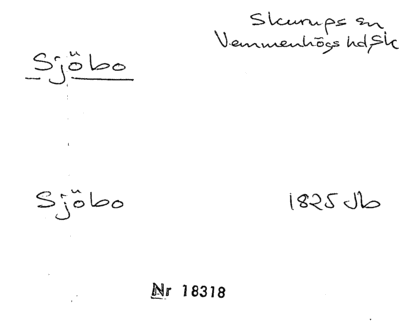 Skurups sn
Vemmenhögs hd, Sk
Sjöbo
Sjöbo 1825 Jb
Nr 18318